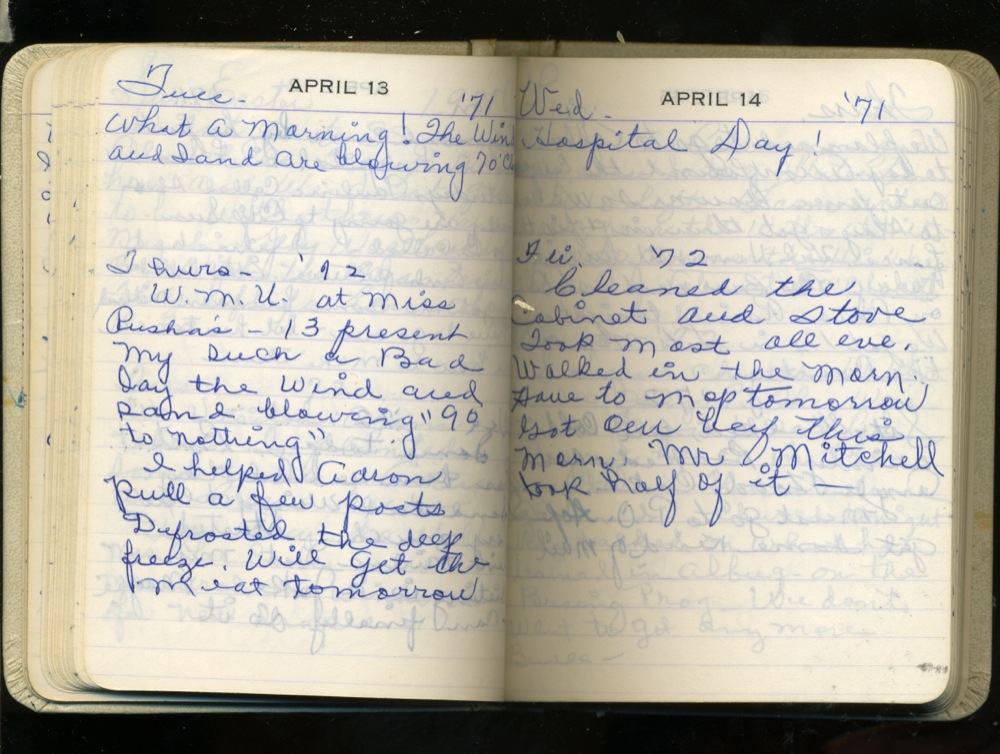 APRIL 13
Tues. '71
What a Morning! The Wind
and Sand are blowing 70
Thurs - '72
W.M.U. at Miss
Rusha's - 13 present
My such a Bad
day the Wind and
sand blowing "90
to nothing"
I helped Adron
pull a few posts
Defrosted the deep
freeze. Will get the
Meat tomorrow
APRIL 14
Wed. '71
Hospital Day!
Fri. '72
Cleaned the
Cabinet and stove
Took most all eve.
Walked in the Morn.
Have to mop tomorrow
Got our beef this
Morn. Mr. Mitchell
took half of it —